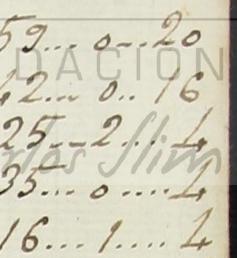 59... o... 20
DACIÓN
42... o.. 16
25... 2... 4
rlos Slim
35... o.... 4
16.... 1.... 4